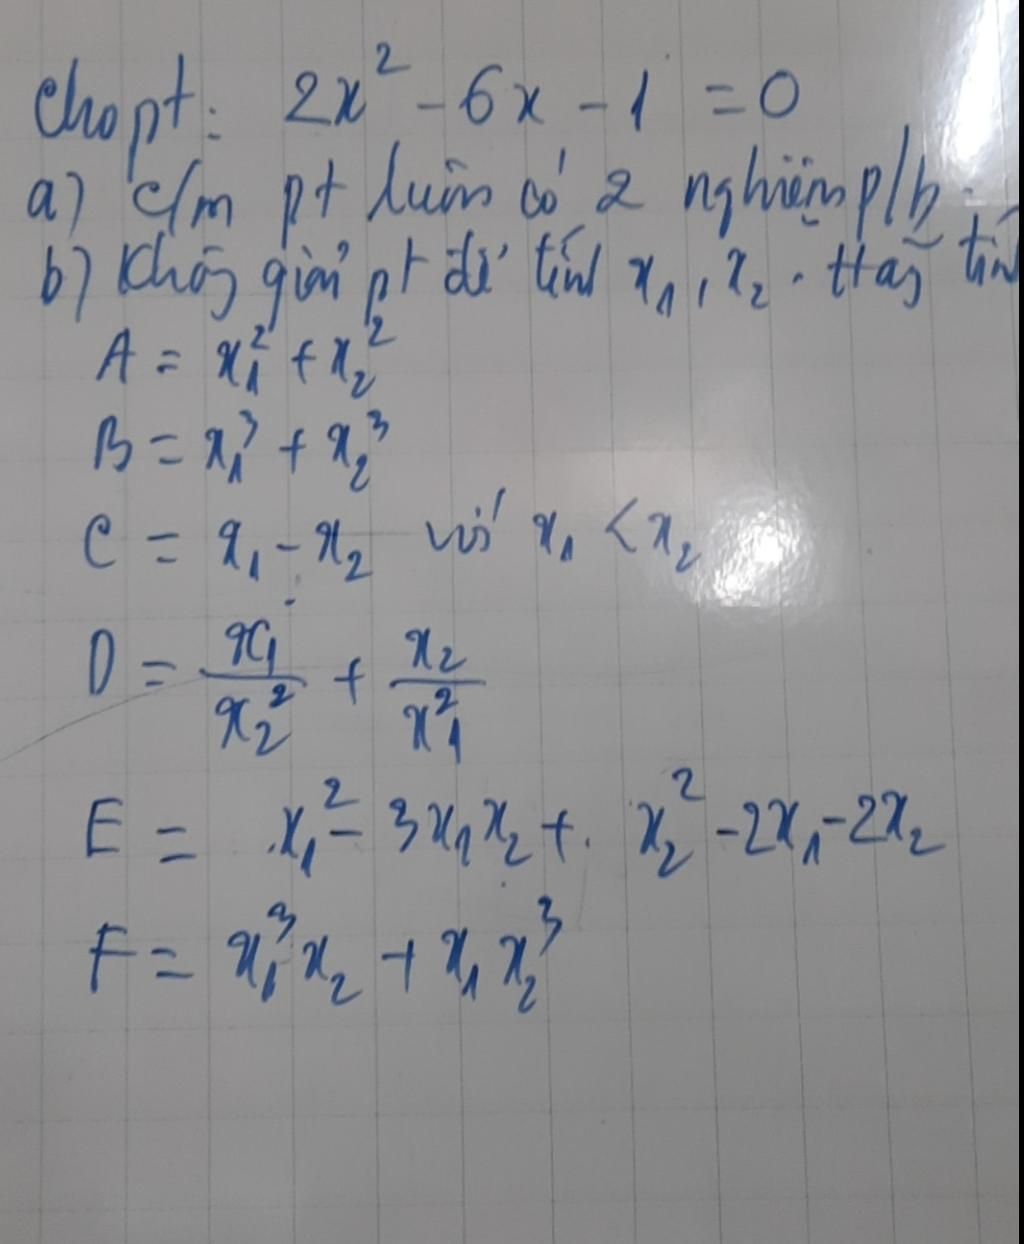 Cho pt: 2x² - 6x - 1 = 0
a) c/m pt luôn có 2 nghiệm p/b.
b) Không giải pt để tính x₁, x₂. Hãy tính
A = x₁² + x₂²
B = x₁³ + x₂³
C = x₁ - x₂ với x₁ < x₂
D = x₁/x₂² + x₂/x₁²
E = x₁² - 3x₁x₂ + x₂² - 2x₁ - 2x₂
F = x₁³x₂ + x₁x₂³